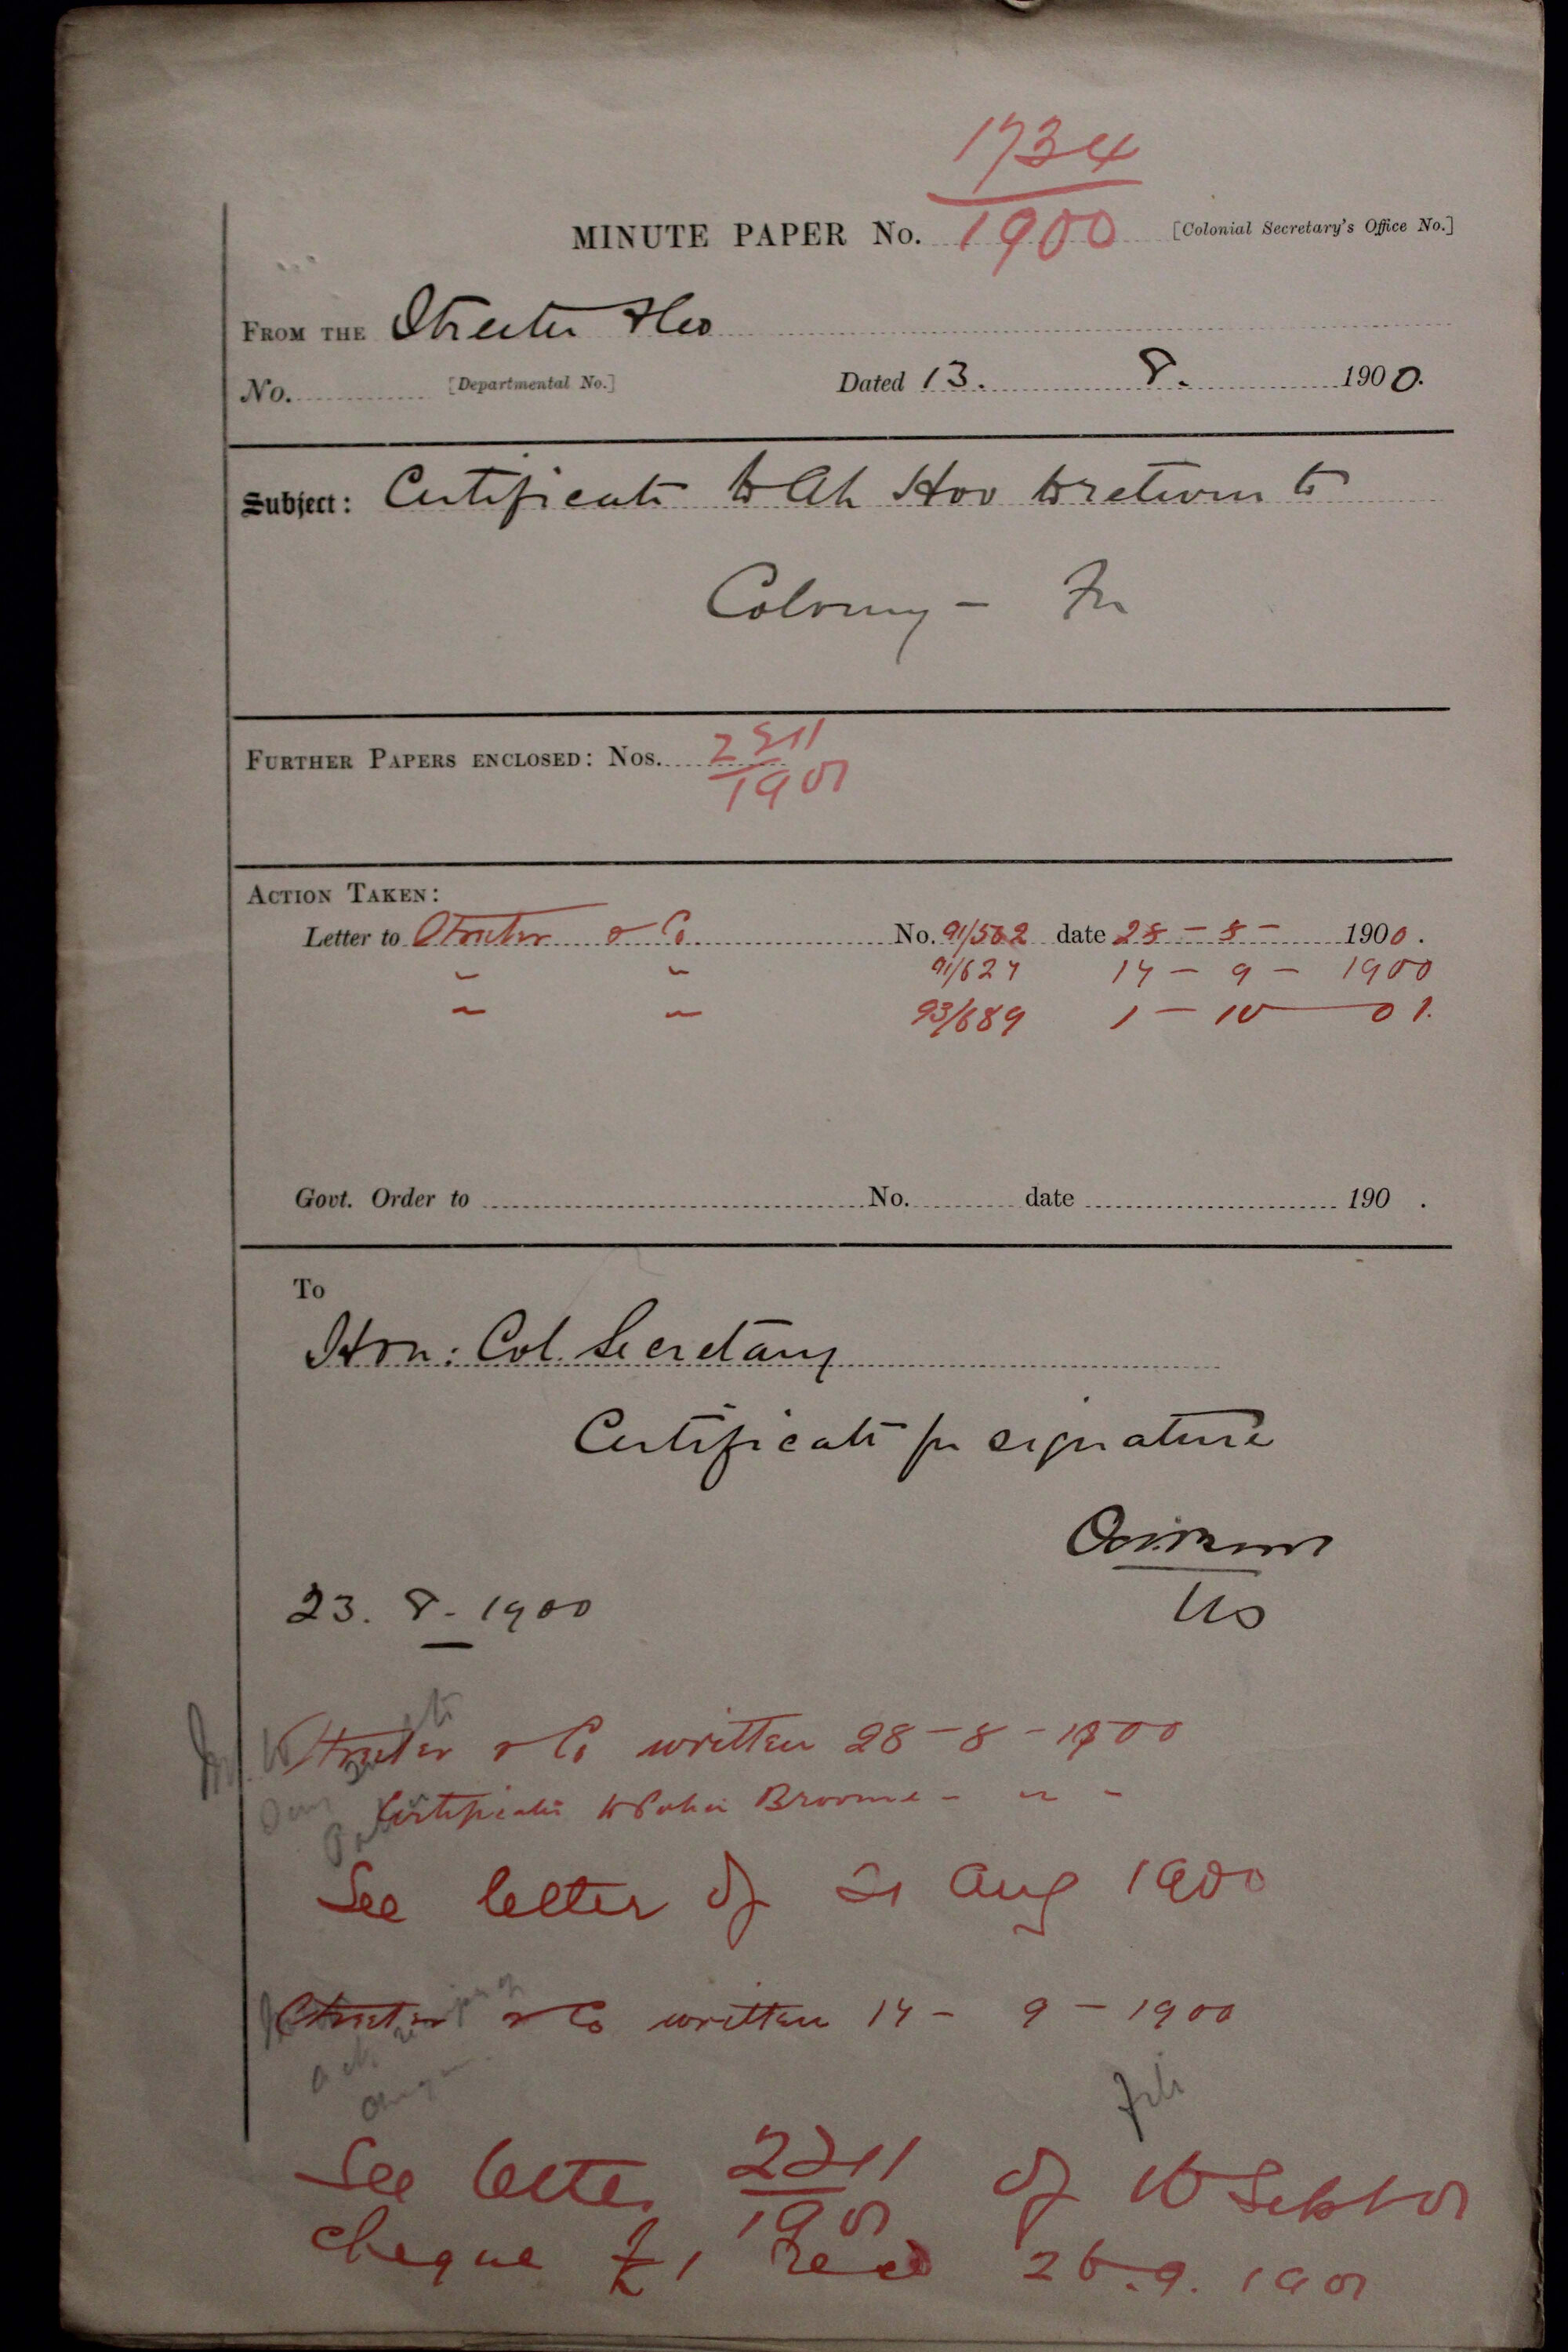 1734
MINUTE PAPER No. 1900 [Colonial Secretary's Office No.]
FROM THE Streeter & Co
No. [Departmental No.] Dated 13. 8. 1900.
Subject: Certificate to Ah Hoo to return to
Colony -
FURTHER PAPERS ENCLOSED: Nos. 2211
1901
ACTION TAKEN:
Letter to Streeter & Co No. 91/562 date 28 - 8 - 1900.
" " 91/627 14 - 9 - 1900
" " 93/689 1 - 10 - 01.
Govt. Order to No. date 190 .
To
Hon: Col. Secretary
Certificate for signature
US
23. 8. 1900
Streeter & Co written 28 - 8 - 1900
Certificate to Broome - " -
See letter of 31 Aug 1900
Streeter & Co written 14 - 9 - 1900
file
See letter 2211 of 10 Sept 01
1901
cheque £1 Recd 26.9.1901